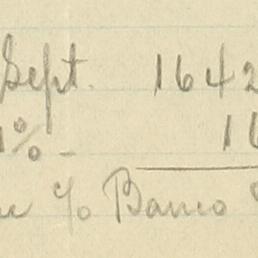 Sept. 1642
1% - 16
c/o Banco